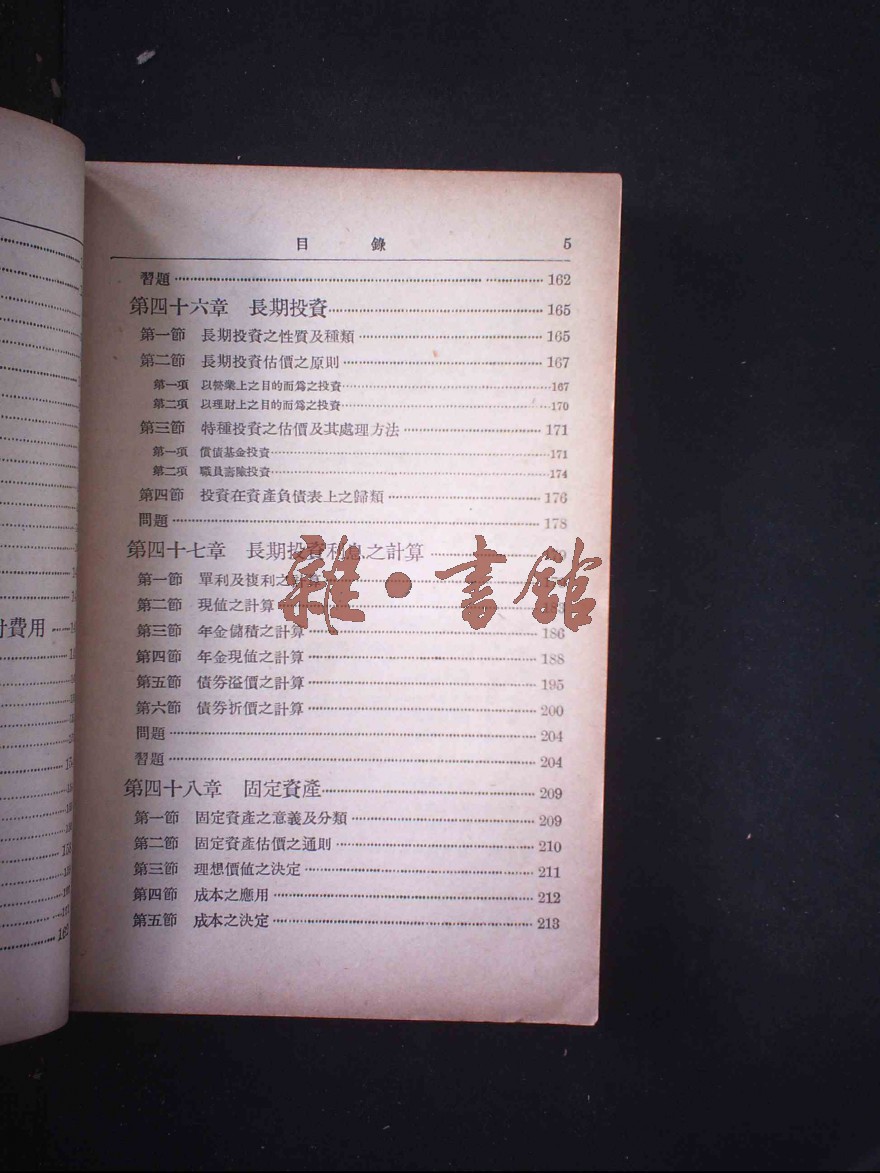 目錄 5
習題 162
第四十六章 長期投資 165
第一節 長期投資之性質及種類 165
第二節 長期投資估價之原則 167
第一項 以營業上之目的而爲之投資 167
第二項 以理財上之目的而爲之投資 170
第三節 特種投資之估價及其處理方法 171
第一項 償債基金投資 171
第二項 職員壽險投資 174
第四節 投資在資產負債表上之歸類 176
問題 178
第四十七章 長期投資利息之計算
第一節 單利及複利之計算
第二節 現値之計算 183
第三節 年金儲積之計算 186
第四節 年金現値之計算 188
第五節 債券溢價之計算 195
第六節 債券折價之計算 200
問題 204
習題 204
第四十八章 固定資產 209
第一節 固定資產之意義及分類 209
第二節 固定資產估價之通則 210
第三節 理想價値之決定 211
第四節 成本之應用 212
第五節 成本之決定 213
雜·書館
付費用